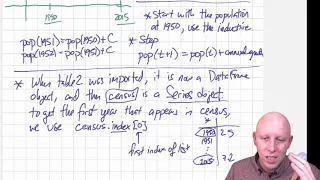 1950 2015
pop(1951) = pop(1950) + C
pop(1952) = pop(1950) + C
* Start with the population
at 1950, use the inductive
* Step
pop(t+1) = pop(t) + annual
* When table2 was imported, it is now a Dataframe
object, and then census is a Series object.
to get the first year that appears in census,
we use census.index[0]
first index of list
1950 2.5
1951
:
2015 7.2